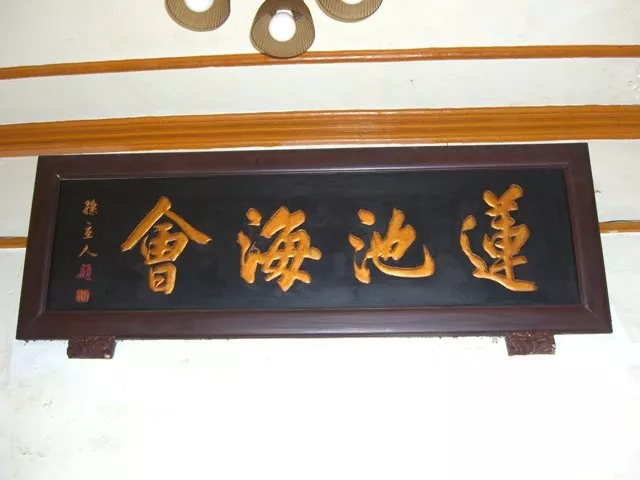 蓮池海會
孫立人題